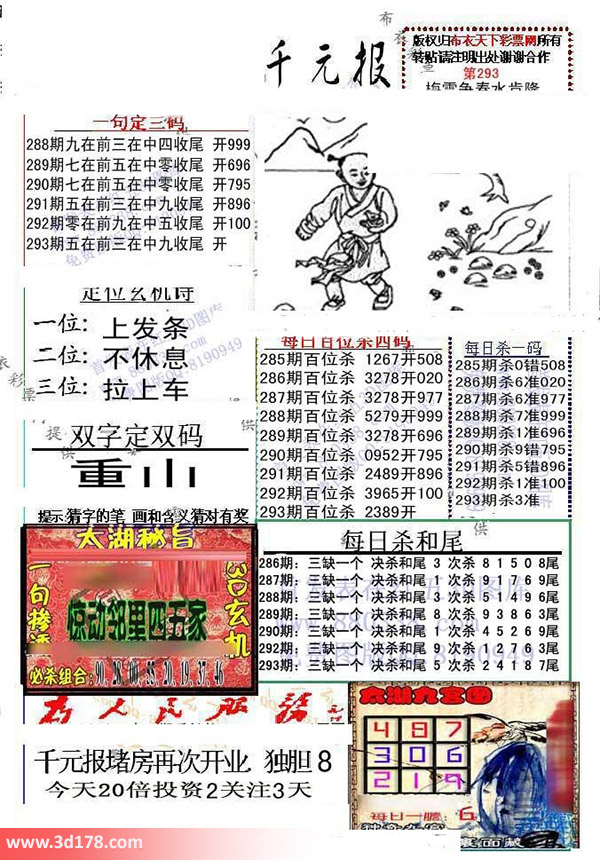 千元报
版权归布衣天下彩票网所有
转贴请注明出处谢谢合作
第293
梅雪争春水肯降
一句定三码
288期九在前三在中四收尾 开999
289期七在前五在中零收尾 开696
290期七在前五在中零收尾 开795
291期五在前三在中九收尾 开896
292期零在前九在中五收尾 开100
293期五在前三在中九收尾 开
定位玄机诗
一位: 上发条
二位: 不休息
三位: 拉上车
双字定双码
重山
提示:猜字的笔 画和含义猜对有奖
每日百位杀四码
285期百位杀 1267开508
286期百位杀 3278开020
287期百位杀 3278开977
288期百位杀 5279开999
289期百位杀 3278开696
290期百位杀 0952开795
291期百位杀 2489开896
292期百位杀 3965开100
293期百位杀 2389开
每日杀一码
285期杀0错508
286期杀6准020
287期杀6准977
288期杀7准999
289期杀1准696
290期杀9错795
291期杀5错896
292期杀1准100
293期杀3准
每日杀和尾
286期: 三缺一个 决杀和尾 3 次杀 8 1 5 0 8尾
287期: 三缺一个 决杀和尾 1 次杀 9 1 7 6 9尾
288期: 三缺一个 决杀和尾 3 次杀 5 1 4 9 6尾
289期: 三缺一个 决杀和尾 8 次杀 9 3 8 6 3尾
290期: 三缺一个 决杀和尾 1 次杀 4 5 2 6 9尾
292期: 三缺一个 决杀和尾 9 次杀 0 1 2 7 6尾
293期: 三缺一个 决杀和尾 5 次杀 2 4 1 8 7尾
太湖秘旨
一句掺透
3D玄机
惊动邻里四五家
必杀组合:90.28.00.55.20.19.37.46
为人民服务
千元报堵房再次开业 独胆 8
今天20倍投资2关注3天
太湖九宫图
4 8 7
3 0 6
2 1 9
每日一胆: 6
www.3d178.com